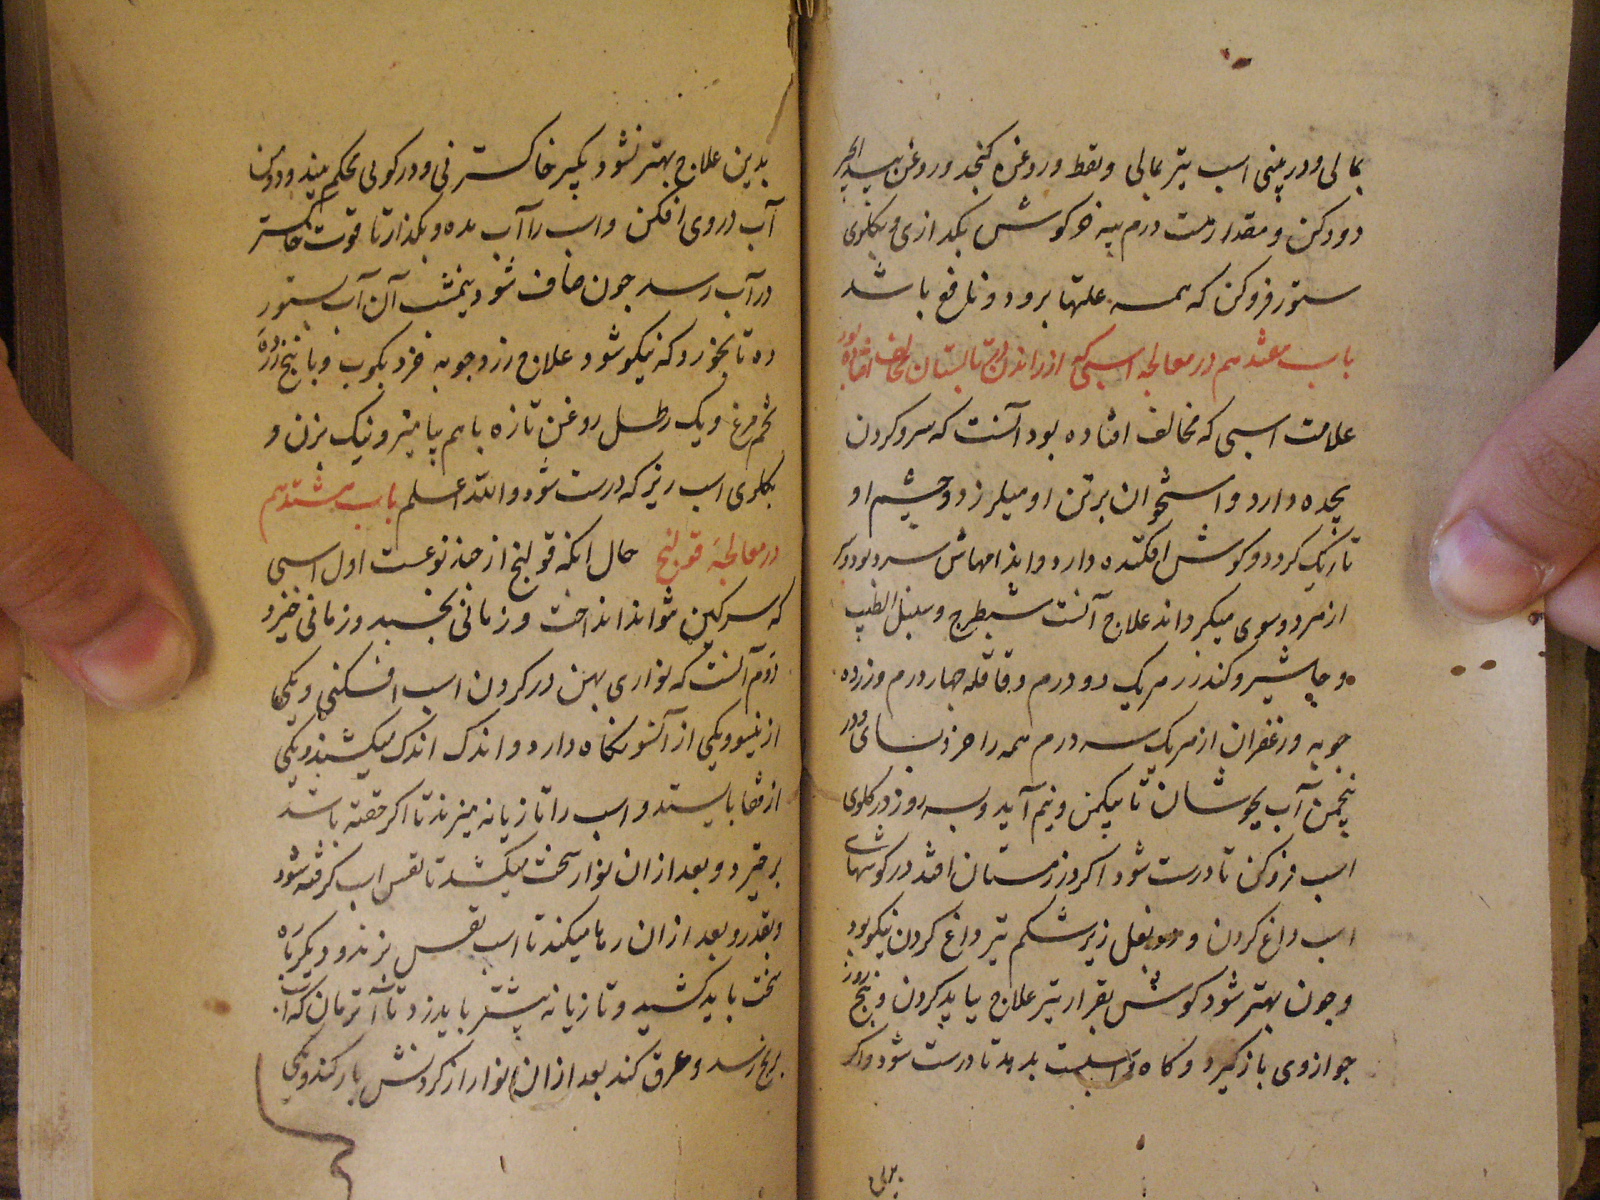 بمالی و در بینی اسب نیز بمالی و نفط و روغن کنجد و روغن
دود کن و مقدار بیست درم پیه خرکوش بکدازی و بکلوی
ستور فرو کن که همه علتها برود و نافع باشد
باب هفدهم در معالجه اسبی که از راندن در تابستان مخالف افتاده بود
علامت اسبی که مخالف افتاده بود آنست که سر و کردن
بجده دارد و استخوان بر تن او میلرزد و چشم او
تاریک کردد و کوش افکنده دارد و اندامهاش سرد بود و
از مرد و سوی میکرداند علاج آنست شیطرج و سنبل الطیب
و جاشیر و کندر از هر یک دو درم و قاقله چهار درم و زرده
جوبه و زعفران از هر یک سه درم همه را خرد بسای و در
پنجمن آب بجوشان تا بیکمن و نیم آید و سه روز در کلوی
اسب فرو کن تا درست شود اکر در زمستان افتد در کوشهای
اسب داغ کردن و دو بغل زیر شکم نیز داغ کردن نیکو بود
و چون بهتر شود کوشش بقرار نیز علاج بباید کردن و پنج روز
جو از وی باز کیرد و کاه و اسبست بدهد تا درست شود و اکر
بدین
بدین علاج بهتر نشود بکیر خاکستر نی و در کوی محکم
آب در وی افکن و اسب را آب مده و بکذار تا قوت خاکستر
در آب رسد چون صاف شود نیمشب آن آب ستور
ده تا بخورد که نیکو شود علاج زردجوبه خرد بکوب و با پنج زرده
تخم مرغ و یک رطل روغن تازه با هم بیامیز و نیک بزن و
بکلوی اسب ریز که درست شود والله اعلم باب هشتدهم
در معالجهٔ قولنج حال آنکه قولنج از چند نوعست اول اسبی
که سرکین نتواند انداخت و زمانی بخسبد و زمانی خیزد
دوم آنست که نواری پهن در کردن اسب افکنی و یکی
ازینسو و یکی از آنسو نکاه دارد و اندک اندک میکشند و یکی
از قفا بایستد و اسب را تازیانه میزند تا اکر خفته باشد
برخیزد و بعد از آن نوار سخت میکشد تا نفس اسب کرفته شود
و بعد از آن رها میکند تا اسب نفس بزند و دیکر باره
سخت باید کشید و تازیانه بیشتر باید زد تا آنزمان که اسب
برنج رسد و عرق کند بعد از آن نوار از کردنش باز کند و یکی